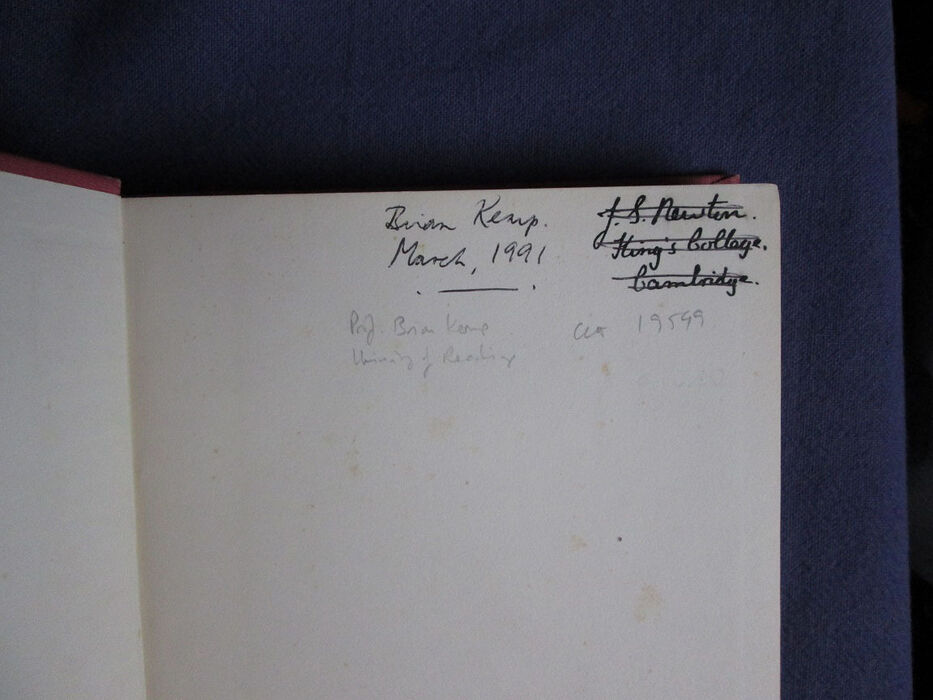 Brian Kemp.
March, 1991
J. S. Newton.
King's College.
Cambridge.
Prof. Brian Kemp
University of Reading
19599